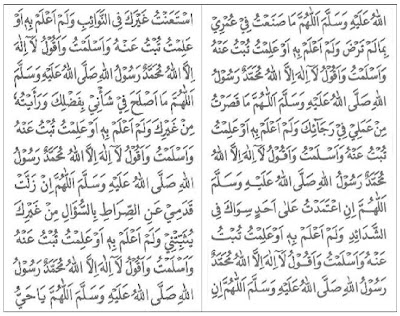 اللهُ عَلَيْهِ وَسَلَّمَ اَللّٰهُمَّ مَا صَنَعْتُ فِيْ عُمْرِيْ
بِمَالَمْ تَرْضَ وَلَمْ اَعْلَمْ بِهٖ اَوْعَلِمْتُ تُبْتُ عَنْهُ
وَاَسْلَمْتُ وَاَقُوْلُ لَآ اِلٰهَ اِلَّا اللهُ مُحَمَّدٌ رَسُوْلُ
اللهِ صَلَّى اللهُ عَلَيْهِ وَسَلَّمَ اَللّٰهُمَّ مَا قَصَرْتُ
مِنْ عَمَلِيْ فِيْ رَجَائِكَ وَلَمْ اَعْلَمْ بِهٖ اَوْعَلِمْتُ
تُبْتُ عَنْهُ وَاَسْلَمْتُ وَاَقُوْلُ لَآ اِلٰهَ اِلَّا اللهُ
مُحَمَّدٌ رَسُوْلُ اللهِ صَلَّى اللهُ عَلَيْهِ وَسَلَّمَ
اَللّٰهُمَّ اِنِ اعْتَمَدْتُ عَلٰى اَحَدٍ سِوَاكَ فِى
الشَّدَائِدِ وَلَمْ اَعْلَمْ بِهٖ اَوْعَلِمْتُ تُبْتُ
عَنْهُ وَاَسْلَمْتُ وَاَقُوْلُ لَآ اِلٰهَ اِلَّا اللهُ مُحَمَّدٌ
رَسُوْلُ اللهِ صَلَّى اللهُ عَلَيْهِ وَسَلَّمَ اَللّٰهُمَّ اِنِ
اسْتَعَنْتُ غَيْرَكَ فِى النَّوَائِبِ وَلَمْ اَعْلَمْ بِهٖ اَوْ
عَلِمْتُ تُبْتُ عَنْهُ وَاَسْلَمْتُ وَاَقُوْلُ لَآ اِلٰهَ
اِلَّا اللهُ مُحَمَّدٌ رَسُوْلُ اللهِ صَلَّى اللهُ عَلَيْهِ وَسَلَّمَ
اَللّٰهُمَّ مَا اَصْلَحَ فِيْ شَاْنِيْ بِفَضْلِكَ وَرَاَيْتُهٗ
مِنْ غَيْرِكَ وَلَمْ اَعْلَمْ بِهٖ اَوْعَلِمْتُ تُبْتُ عَنْهُ
وَاَسْلَمْتُ وَاَقُوْلُ لَآ اِلٰهَ اِلَّا اللهُ مُحَمَّدٌ رَسُوْلُ
اللهِ صَلَّى اللهُ عَلَيْهِ وَسَلَّمَ اَللّٰهُمَّ اِنْ زَلَّتْ
قَدَمِيْ عَنِ الصِّرَاطِ بِالسُّوَالِ مِنْ غَيْرِكَ
يُثَبِّتُنِيْ وَلَمْ اَعْلَمْ بِهٖ اَوْعَلِمْتُ تُبْتُ عَنْهُ
وَاَسْلَمْتُ وَاَقُوْلُ لَآ اِلٰهَ اِلَّا اللهُ مُحَمَّدٌ رَسُوْلُ
اللهِ صَلَّى اللهُ عَلَيْهِ وَسَلَّمَ اَللّٰهُمَّ يَا حَيُّ